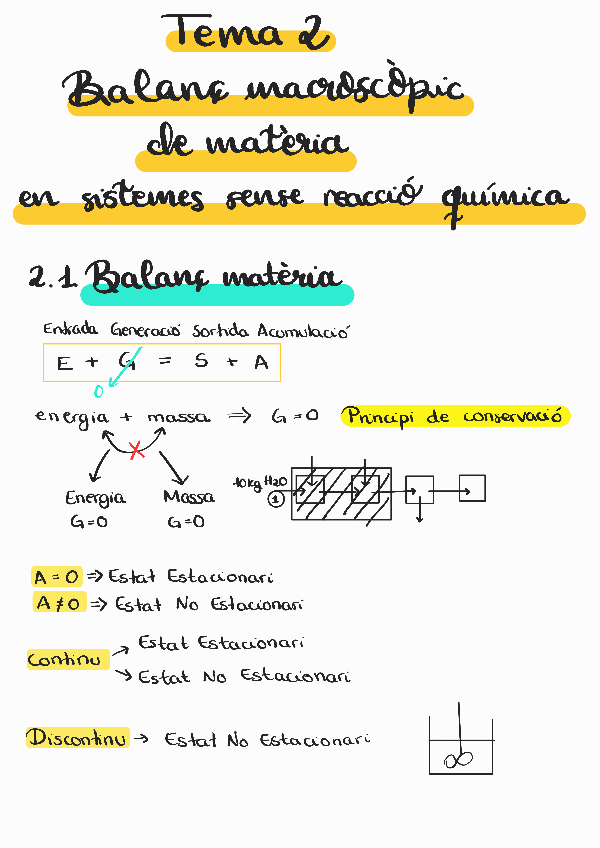 Tema 2
Balanç macroscòpic
de matèria
en sistemes sense reacció química
2.1 Balanç matèria
Entrada Generació Sortida Acumulació
E + G = S + A
0
energia + massa ⇒ G=0 Principi de conservació
Energia Massa
G=0 G=0
10kg H2O
1
A = 0 ⇒ Estat Estacionari
A ≠ 0 ⇒ Estat No Estacionari
Continu → Estat Estacionari
→ Estat No Estacionari
Discontinu → Estat No Estacionari